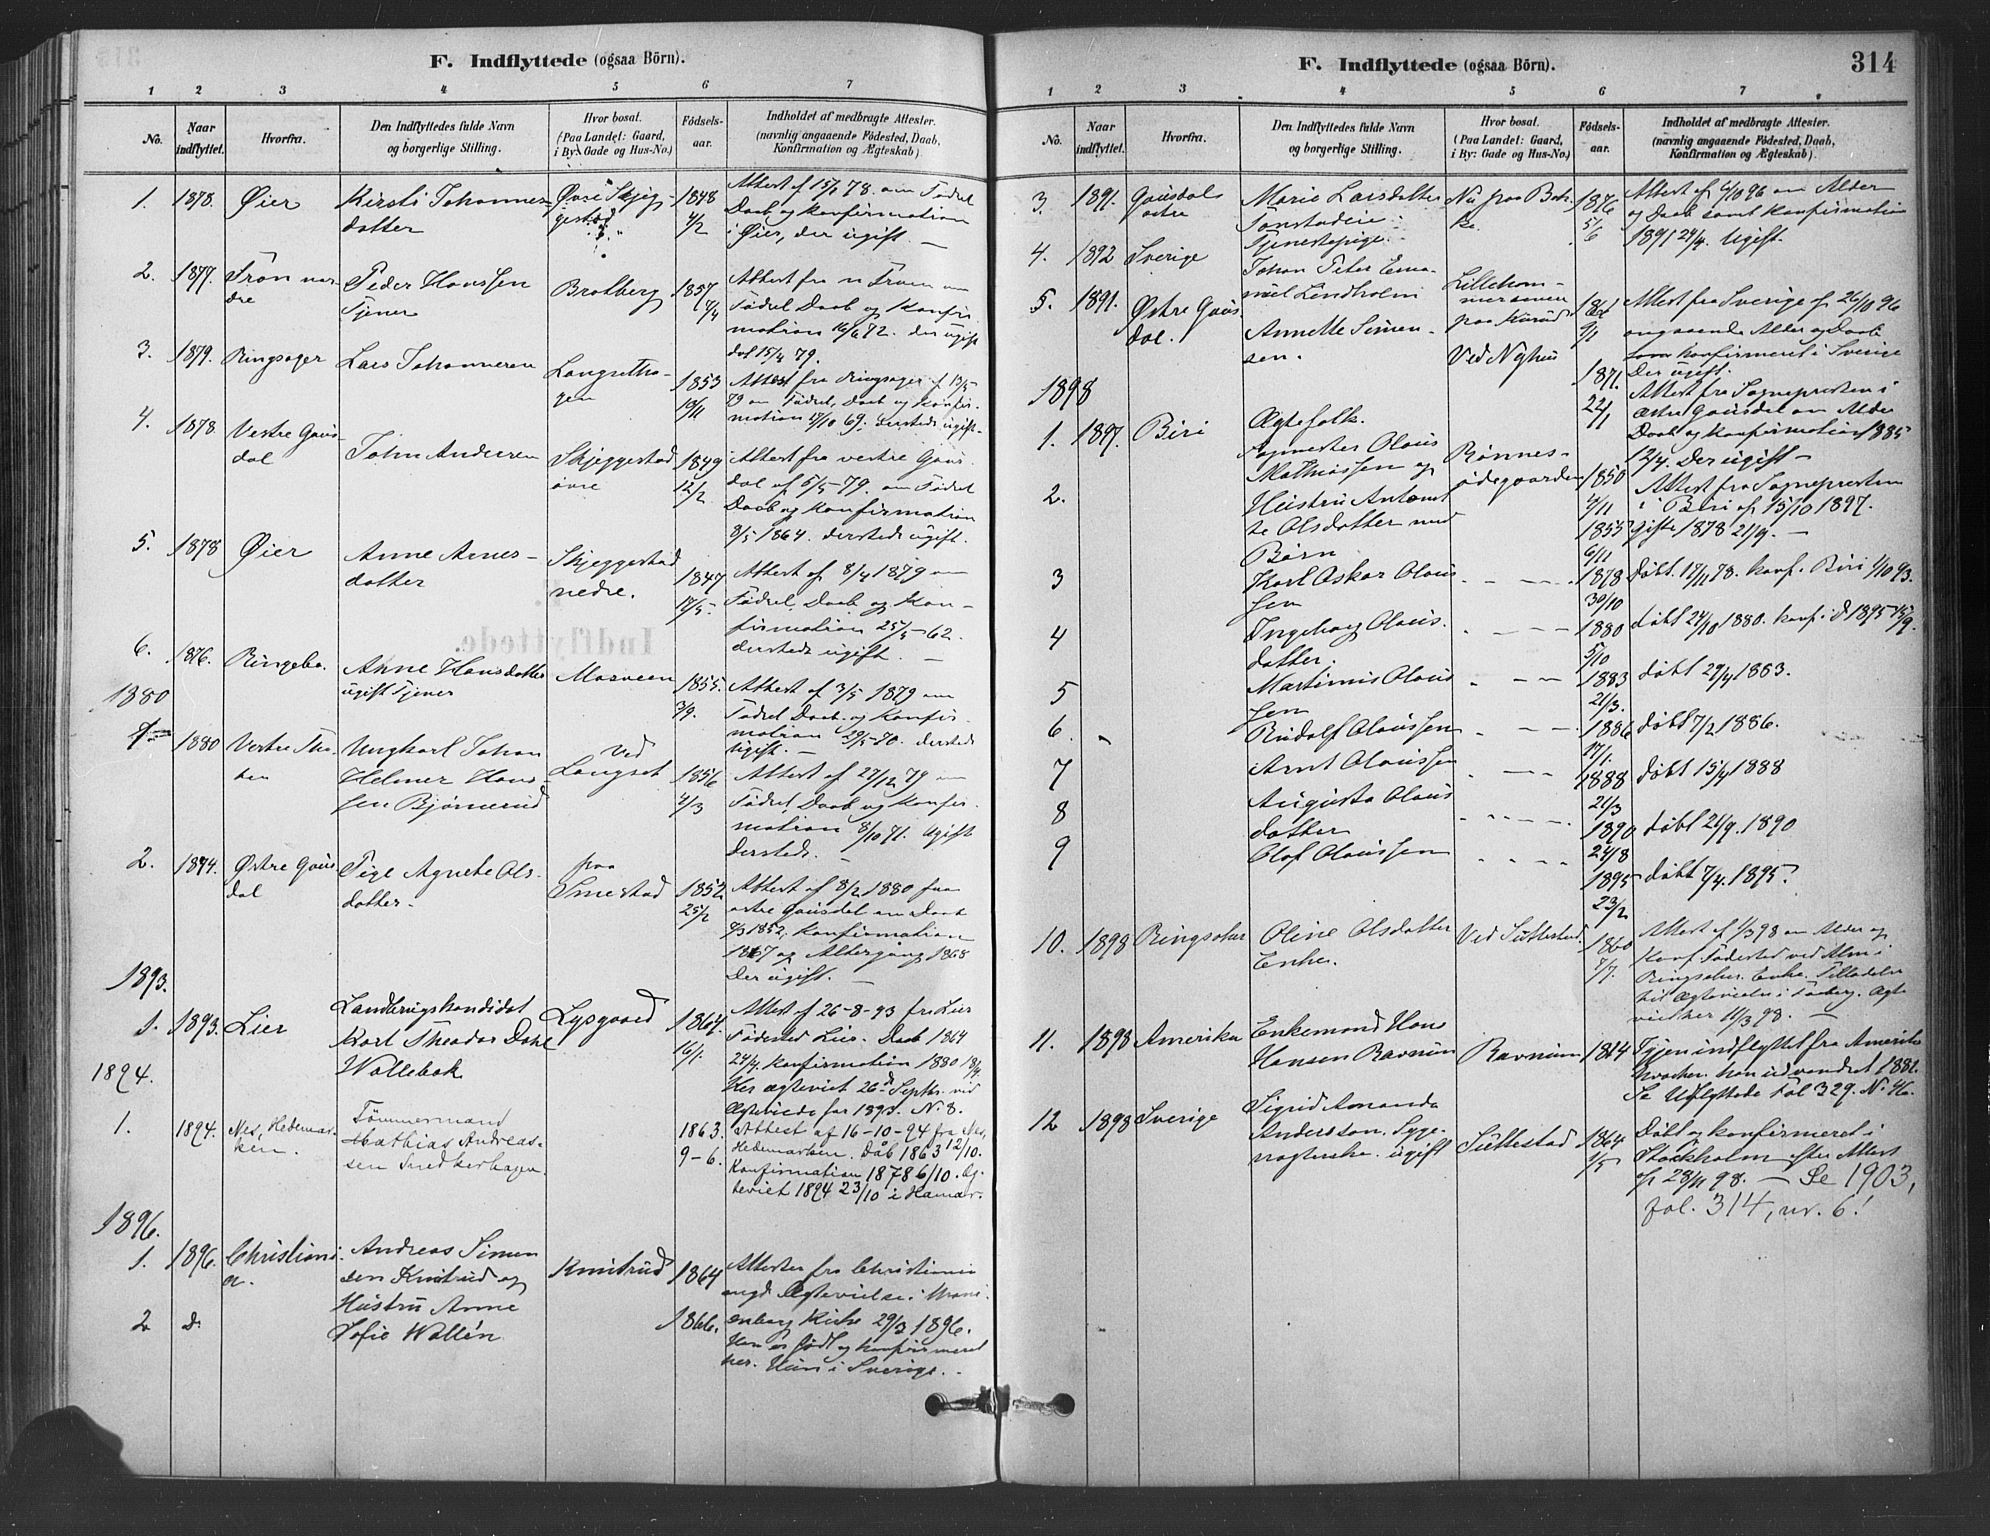 F. Indflyttede (ogsaa Börn).
1 2 3 4 5 6 7
No. Naar indflyttet. Hvorfra. Den Indflyttedes fulde Navn og borgerlige Stilling. Hvor bosat. (Paa Landet: Gaard, i By: Gade og Hus-No.) Födsels-aar. Indholdet af medbragte Attester. (navnlig angaaende Födested, Daab, Konfirmation og Ægteskab).
1. 1878. Øier Kirsti Johannes- Øvre Skjeg- 1848 Attest af 15/1 78. om Fødsel
datter gestad 4/2 Daab og Konfirmation
i Øier, der ugift. —
2. 1877. Fron nor- Peder Hanssen Brotberg 1857 Attest fra n Fron om
dre Tjener 7/4 Fødsel Daab og Konfir-
mation 16/6 72. der ugift
dal 15/4 79.
3. 1879. Ringsager Lars Johannesen Langsetha- 1853 Attest fra Ringsager af 13/5
gen 19/11 79 om Fødsel, Daab og Konfir-
mation 17/10 69. dersteds ugift.
4. 1878 Vestre Gaus- John Andersen Skjeggestad 1849 Attest fra vestre Gaus-
dal øvre 12/2 dal af 5/5-79. om Fødsel
Daab og Konfirmation
8/5 1864. dersteds ugift.
5. 1878 Øier Anne Arnes- Skjeggestad 1847 Attest af 8/4 1879 om
datter nedre. 17/5- Fødsel, Daab og Kon-
firmation 25/5-62.
dersteds ugift. —
6. 1876. Ringebo. Anne Hansdatter Mosveen 1855. Attest af 3/5 1879 om
ugift Tjener 3/9. Fødsel Daab og Konfir-
mation 29/5-70. dersteds
ugift. —
1880
1 1880 Vestre Tho- Ungkarl Johan Ved 1856 Attest af 27/12 79 om
ten Helmer Hans- Langset 4/3 Fødsel Daab og Konfir-
sen Bjørnerud mation 8/10 71. Ugift
dersteds. —
2. 1874. Østre Gaus- Pige Agnete Ols- paa 1852 Attest af 8/2 1880 fra
dal datter. Smestad 25/2 østre Gausdal om Daab
1852, Konfirmation
1867 og Altergang 1868
Der ugift. —
1893.
1. 1893. Lier Landbrugskandidat Lysgaard 1864. Attest af 26-8-93 fra Lier
Karl Theodor Dahl 16/1. Fødested Lier. Daab 1864
Wollebæk 24/4. Konfirmation 1880 18/4.
Her ægteviet 26de Septbr. vid
Ægteviede for 1893. N. 8.
1894.
1. 1894. Nes, Hedemar- Tømmermand 1863. Attest af 16-10-94 fra Nes,
ken. Mathias Andreas- 9-6. Hedemarken. Dåb 1863 12/10.
sen Snedkerhagen. Konfirmation 1878 6/10. Æg-
teviet 1894 23/10 i Hamar.
1896.
1. 1896. Christiani- Andreas Simen- Knutrud 1864 Attester fra Christiania
a. sen Knutrud og angd Ægtevielse i Urani-
2 D. Hustru Anne 1866. enborg Kirke 29/3 1896.
Sofie Wallén Han er født og konfirmeret
her. Hun i Sverige. -
F. Indflyttede (ogsaa Börn). 314
1 2 3 4 5 6 7
No. Naar indflyttet. Hvorfra. Den Indflyttedes fulde Navn og borgerlige Stilling. Hvor bosat. (Paa Landet: Gaard, i By: Gade og Hus-No.) Födsels-aar. Indholdet af medbragte Attester. (navnlig angaaende Födested, Daab, Konfirmation og Ægteskab).
3. 1891. Gausdal Marie Larsdatter Nu paa Bak- 1876 Attest af 6/10 96 om Alder
østre Tonstadeie ke. 5/6 og Daab samt Konfirmation
Tjenestepige. 1891 29/4. Ugift.
4. 1892 Sverige Johan Peter Ema- Lilleham- Attest fra Sverige af 26/10 96
nuel Lindholm angaaende Alder og Daab
som konfirmeret i Sverige
Der ugift.
5. 1891. Østre Gaus- Annette Simen- Ved Nyhus 1871. Attest fra Sognepresten i
dal. sen. 22/1 østre Gausdal om Alder
Daab og Konfirmation 1885
12/4. Der ugift —
1898
1. 1897. Biri Ægtefolk. Rønnes- 1850 Attest fra Sognepresten
Olaus ødegaarden 4/11 i Biri af 15/10 1897.
Mathiassen og
2. Hustru Antonet- 1855 gifte 1878 21/9. —
te Olsdatter med 6/11
Børn
3 Karl Oskar Olaus- — — 1878 døbt 17/11 78. konf. Biri 1/10 93.
sen 30/10
4 Ingeborg Olaus- — — 1880 døbt 24/10 1880. konf. i d 1895 15/9.
datter. 5/10
5 Martinus Olaus- — — 1883 døbt 29/4 1883.
sen 21/3.
6. Rudolf Olaussen — — 1886 døbt 7/2 1886.
17/1.
7 Arnt Olaussen — — 1888 døbt 15/4 1888
21/3
8 Augusta Olaus- 1890 døbt 21/9. 1890
datter 24/8
9 Olof Olaussen 1895 døbt 7/4. 1895.
23/2
10. 1898 Ringsaker Oline Olsdatter Ved Suttestad. 1860 Attest af 1/3 98 om Alder og
Enke. 7/7. Konf. Fødested ved Alm i
Ringsaker. Enke. Tilladelse
til Ægtevielse i Faaberg. Ægte-
viedher 11/3 98. —
11. 1898 Amerika Enkemand Hans
Hansen Ravnum Ravnum 1814 Igjen indflyttet fra Amerika
hvorhen han udvandret 1881.
Se Udflyttede Fol 329. N. 46.
12 1898 Sverige Sigrid Amanda
Andersson. Syge- Suttestad 1864 Døbt og konfirmeret i
vogterske. ugift 1/5 Stockholm efter Attest
af 28/11 98. — Se 1903,
fol. 314, nr. 6!